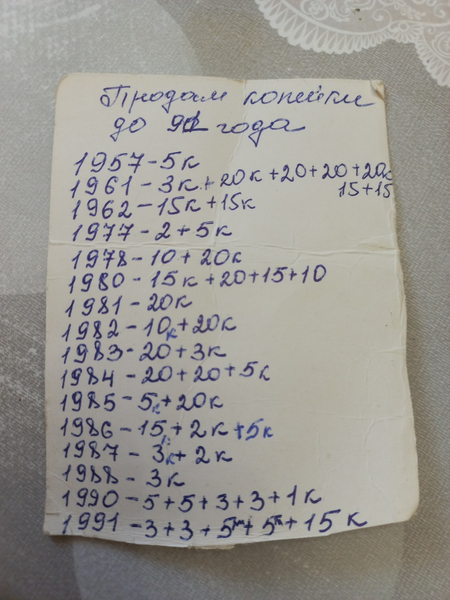 Продам копейки
до 91 года
1957-5к
1961-3к+20к+20+20+20к
15+15
1962-15к+15к
1977-2+5к
1978-10+20к
1980-15к+20+15+10
1981-20к
1982-10к+20к
1983-20+3к
1984-20+20+5к
1985-5к+20к
1986-15к+2к+5к
1987-3к+2к
1988-3к
1990-5+5+3+3+1к
1991-3+3+5+5+15к